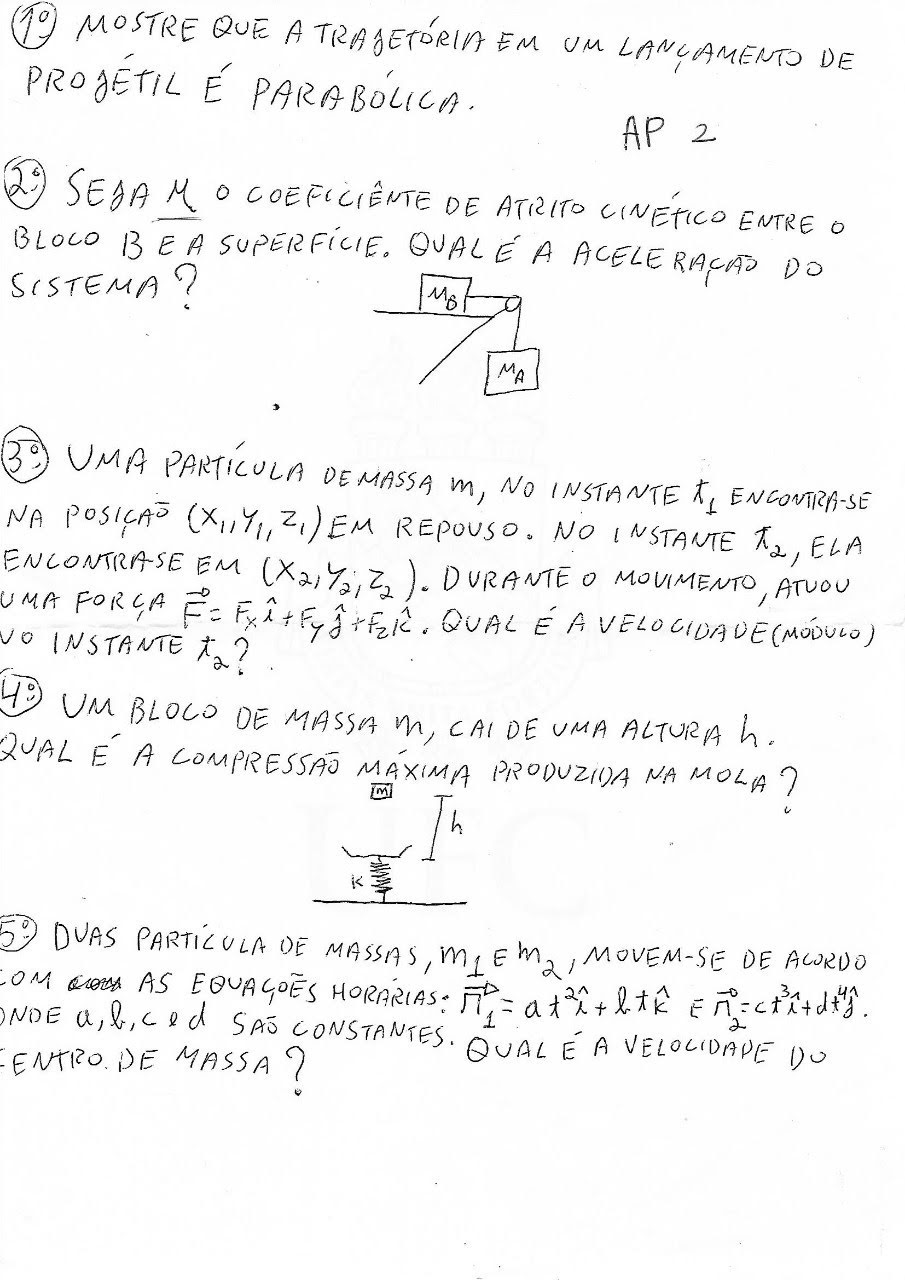 1º) MOSTRE QUE A TRAJETÓRIA EM UM LANÇAMENTO DE
PROJÉTIL É PARABÓLICA.
AP 2
2º) SEJA M O COEFICIÊNTE DE ATRITO CINÉTICO ENTRE O
BLOCO B E A SUPERFÍCIE. QUAL É A ACELERAÇÃO DO
SISTEMA?
MB
MA
3º) UMA PARTÍCULA DE MASSA m, NO INSTANTE t₁ ENCONTRA-SE
NA POSIÇÃO (X₁,Y₁,Z₁) EM REPOUSO. NO INSTANTE t₂, ELA
ENCONTRA-SE EM (X₂,Y₂,Z₂). DURANTE O MOVIMENTO, ATUOU
UMA FORÇA F⃗=Fxî+Fyĵ+Fzk̂. QUAL É A VELOCIDADE (MÓDULO)
NO INSTANTE t₂?
4º) UM BLOCO DE MASSA m, CAI DE UMA ALTURA h.
QUAL É A COMPRESSÃO MÁXIMA PRODUZIDA NA MOLA?
m
h
K
5º) DUAS PARTÍCULA DE MASSAS, m₁ E m₂, MOVEM-SE DE ACORDO
COM AS EQUAÇÕES HORÁRIAS: r⃗₁=at²î+btk̂ E r⃗₂=ct³î+dt⁴ĵ.
ONDE a,b,c e d SAO CONSTANTES. QUAL É A VELOCIDADE DO
CENTRO DE MASSA?